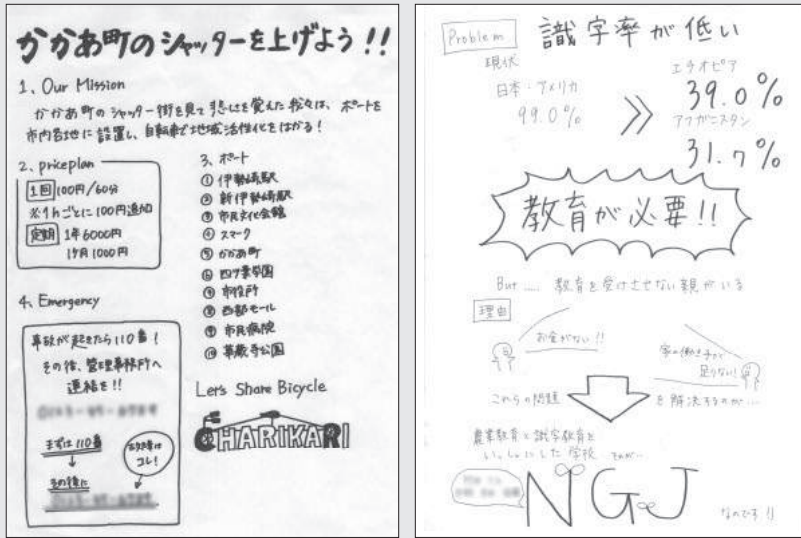 かかあ町のシャッターを上げよう!!
1、Our Mission
かかあ町のシャッター街を見て悲しさを覚えた我々は、ポートを
市内各地に設置し、自転車で地域活性化をはかる!
2、priceplan
1回 100円/60分
※1hごとに100円追加
定期 1年6000円
1ヶ月1000円
3、ポート
① 伊勢崎駅
② 新伊勢崎駅
③ 市民文化会館
④ スマーク
⑤ かかあ町
⑥ 四ツ葉学園
⑦ 市役所
⑧ 西部モール
⑨ 市民病院
⑩ 華蔵寺公園
4、Emergency
事故が起きたら110番!
その後、管理事務所へ
連絡を!!
まずは110番
↓
その後に
コレ!
Let's Share Bicycle
CHARIKARI
Problem 識字率が低い
現状
日本・アメリカ
99.0%
≫
エチオピア
39.0%
アフガニスタン
31.7%
教育が必要!!
But..... 教育を受けさせない親がいる
理由
お金がない!!
家の働き手が
足りない!
これらの問題 を解決するのが…
農業教育と識字教育を
いっしょにした学校 それが…
NGJ
なのです!!